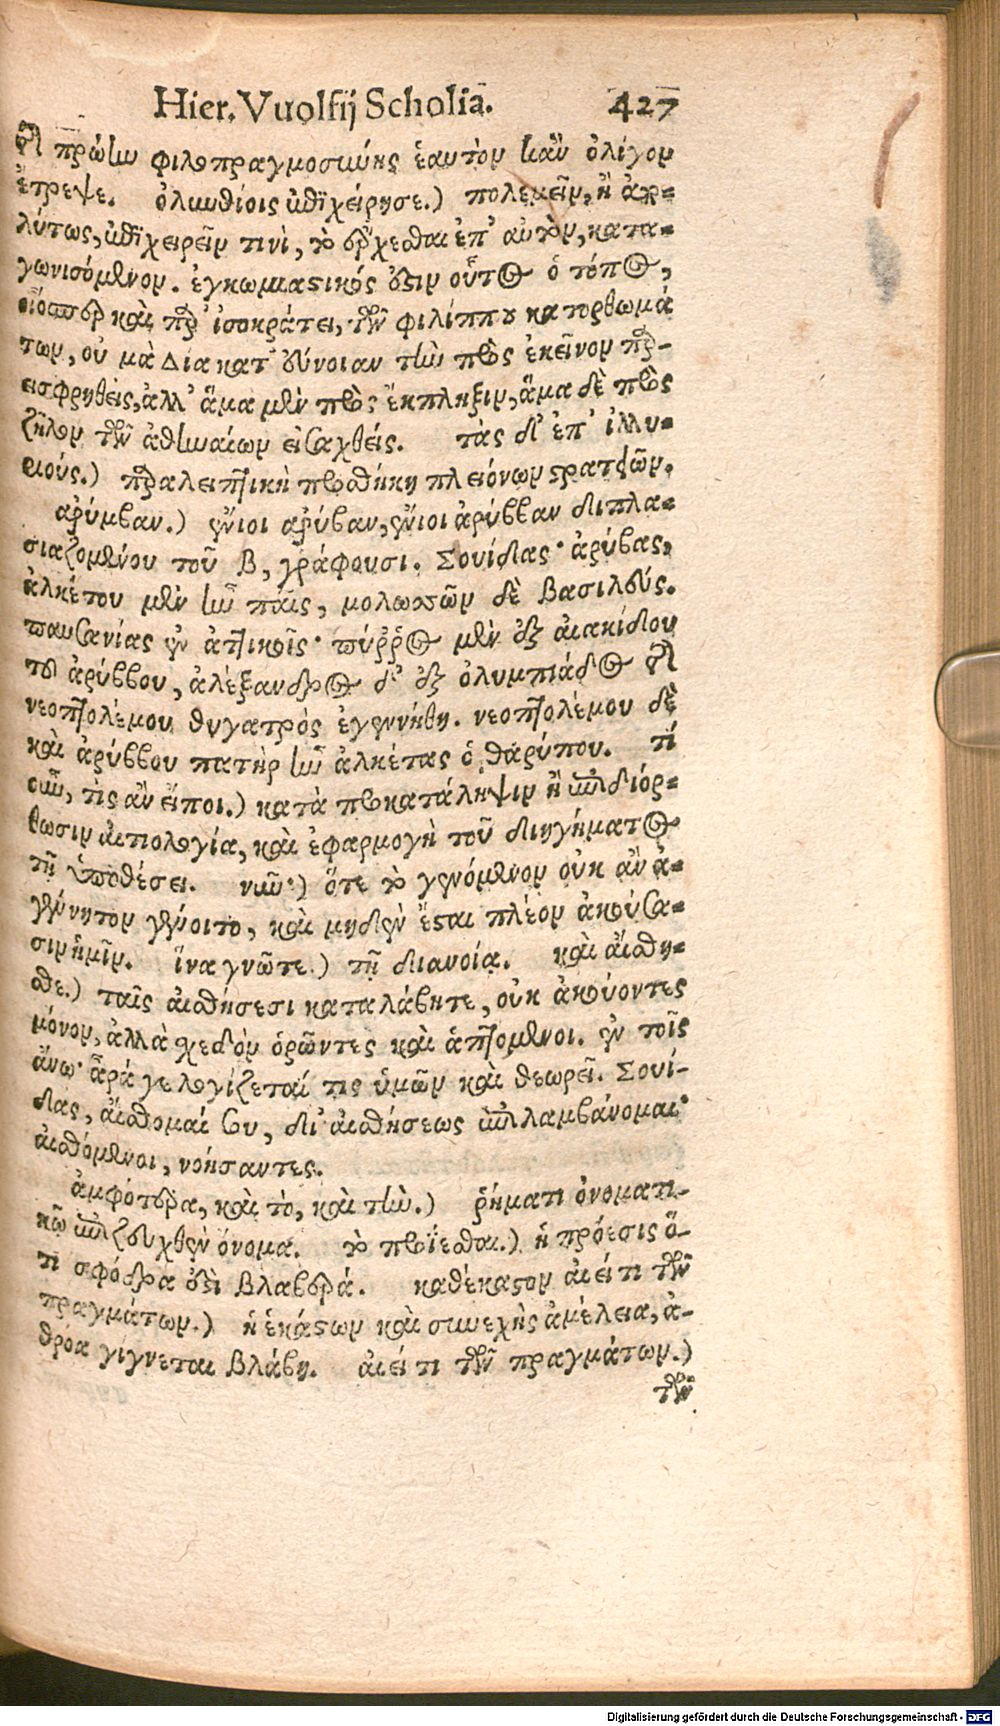 Hier. Vuolfij Scholia. 427
τῆς πρώην φιλοπραγμοσύνης ἑαυτὸν κἂν ὀλίγον
ἔτρεψε. ὀλυνθίοις ἐπεχείρησε.) πολεμεῖν, ἢ ἀπ-
λύτως, ἐπιχειρεῖν τινὶ, τὸ ἔρχεσθαι ἐπ' αὐτὸν, κατα-
γωνισόμενον. ἐγκωμιαστικός ἐστιν οὗτος ὁ τόπος,
οἷόσπερ καὶ παρ' ἰσοκράτει, τῶν φιλίππου κατορθωμά
των, οὐ μὰ Δία κατ' εὔνοιαν τὴν πρὸς ἐκεῖνον παρ-
εισφρηθεὶς, ἀλλ' ἅμα μὲν πρὸς ἔκπληξιν, ἅμα δὲ πρὸς
ζῆλον τῶν ἀθηναίων εἰσαχθείς. τὰς δ' ἐπ' ἰλλυ-
ριούς.) παραλειπτικὴ προσθήκη πλειόνων στρατειῶν.
ἀρύμβαν.) ἔνιοι ἀρύβαν, ἔνιοι ἀρύββαν διπλα-
σιαζομένου τοῦ β, γράφουσι. Σουίδας· ἀρύβας,
ἀλκέτου μὲν ἦν παῖς, μολοσσῶν δὲ βασιλεύς.
παυσανίας ἐν ἀττικοῖς· πύῤῥος μὲν ἐξ αἰακίδου
τοῦ ἀρύββου, ἀλέξανδρος δ' ἐξ ὀλυμπιάδος τῆς
νεοπτολέμου θυγατρὸς ἐγεννήθη. νεοπτολέμου δὲ
καὶ ἀρύββου πατὴρ ἦν ἀλκέτας ὁ θαρύπου. τί
οὖν, τὶς ἂν εἴποι.) κατὰ προκατάληψιν ἢ ἐπιδιόρ-
θωσιν αἰτιολογία, καὶ ἐφαρμογὴ τοῦ διηγήματος
τῇ ὑποθέσει. νῦν.) ὅτε τὸ γενόμενον οὐκ ἂν ἀ-
γένητον γένοιτο, καὶ μηδὲν ἔσται πλέον ἀκούσα-
σιν ἡμῖν. ἵνα γνῶτε.) τῇ διανοίᾳ. καὶ αἴσθη-
σθε.) ταῖς αἰσθήσεσι καταλάβητε, οὐκ ἀκούοντες
μόνον, ἀλλὰ σχεδὸν ὁρῶντες καὶ ἁπτόμενοι. ἐν τοῖς
ἄνω· ἆρά γε λογίζεταί τις ὑμῶν καὶ θεωρεῖ. Σουί-
δας, αἴσθομαί σου, δι' αἰσθήσεως ἐπιλαμβάνομαι·
αἰσθόμενοι, νοήσαντες.
ἀμφότερα, καὶ τὸ, καὶ τὴν.) ῥήματι ὀνοματι-
κῶ ἐπιζευχθὲν ὄνομα. τὸ προΐεσθαι.) ἡ πρόεσις ὅ-
τι σφόδρα ἐστὶ βλαβερά. καθέκαστον αἰεί τι τῶν
πραγμάτων.) ἡ ἑκάστων καὶ συνεχὴς ἀμέλεια, ἀ-
θρόα γίγνεται βλάβη. αἰεί τι τῶν πραγμάτων.)
τῶν
Digitalisierung gefördert durch die Deutsche Forschungsgemeinschaft - DFG